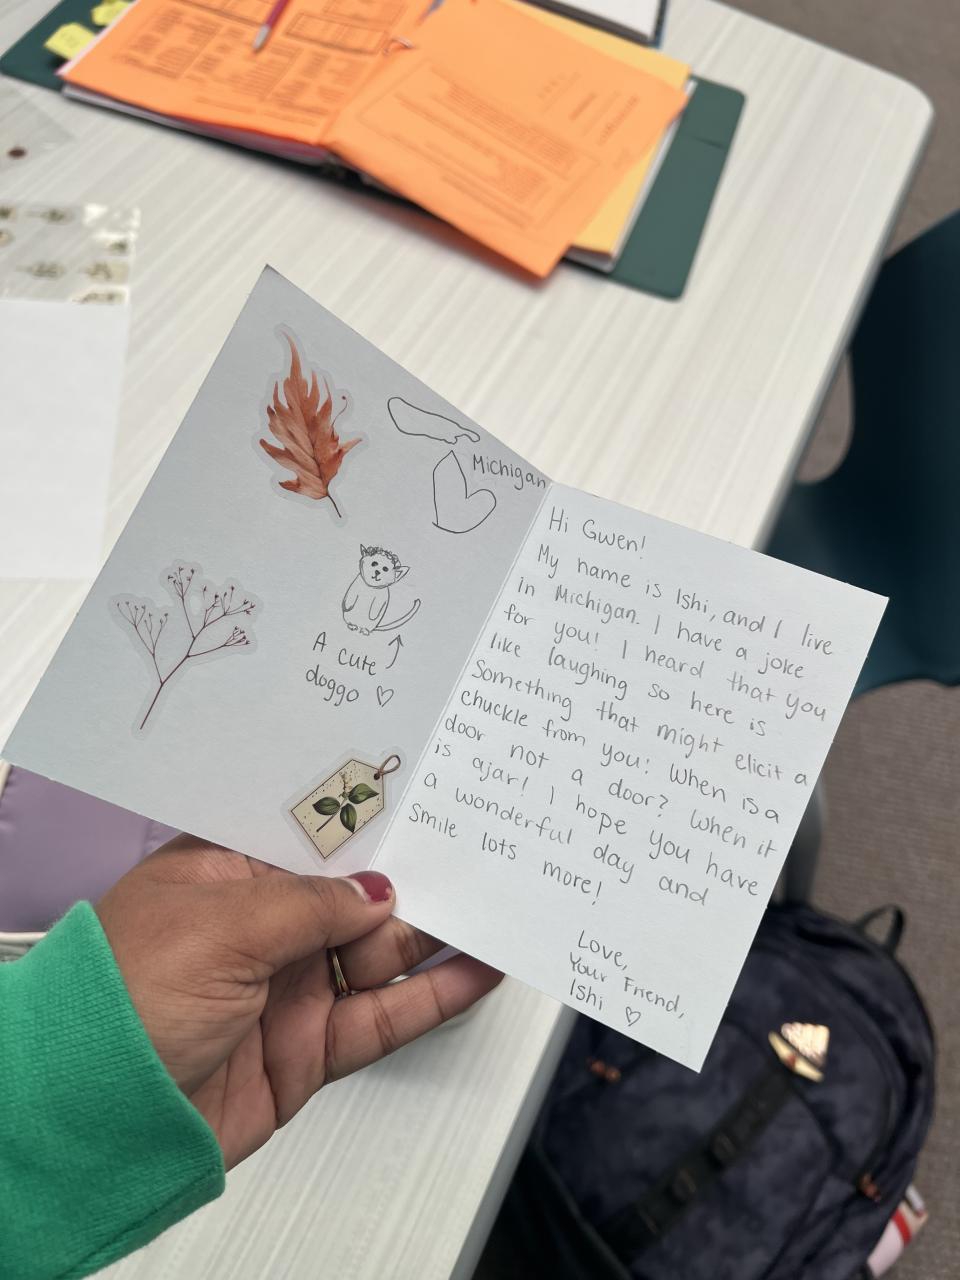 Michigan
A cute
doggo ♡
Hi Gwen!
My name is Ishi, and I live
in Michigan. I have a joke
for you! I heard that you
like laughing so here is
Something that might elicit a
chuckle from you! When is a
door not a door? When it
is ajar! I hope you have
a wonderful day and
smile lots more!
Love,
Your Friend,
Ishi ♡